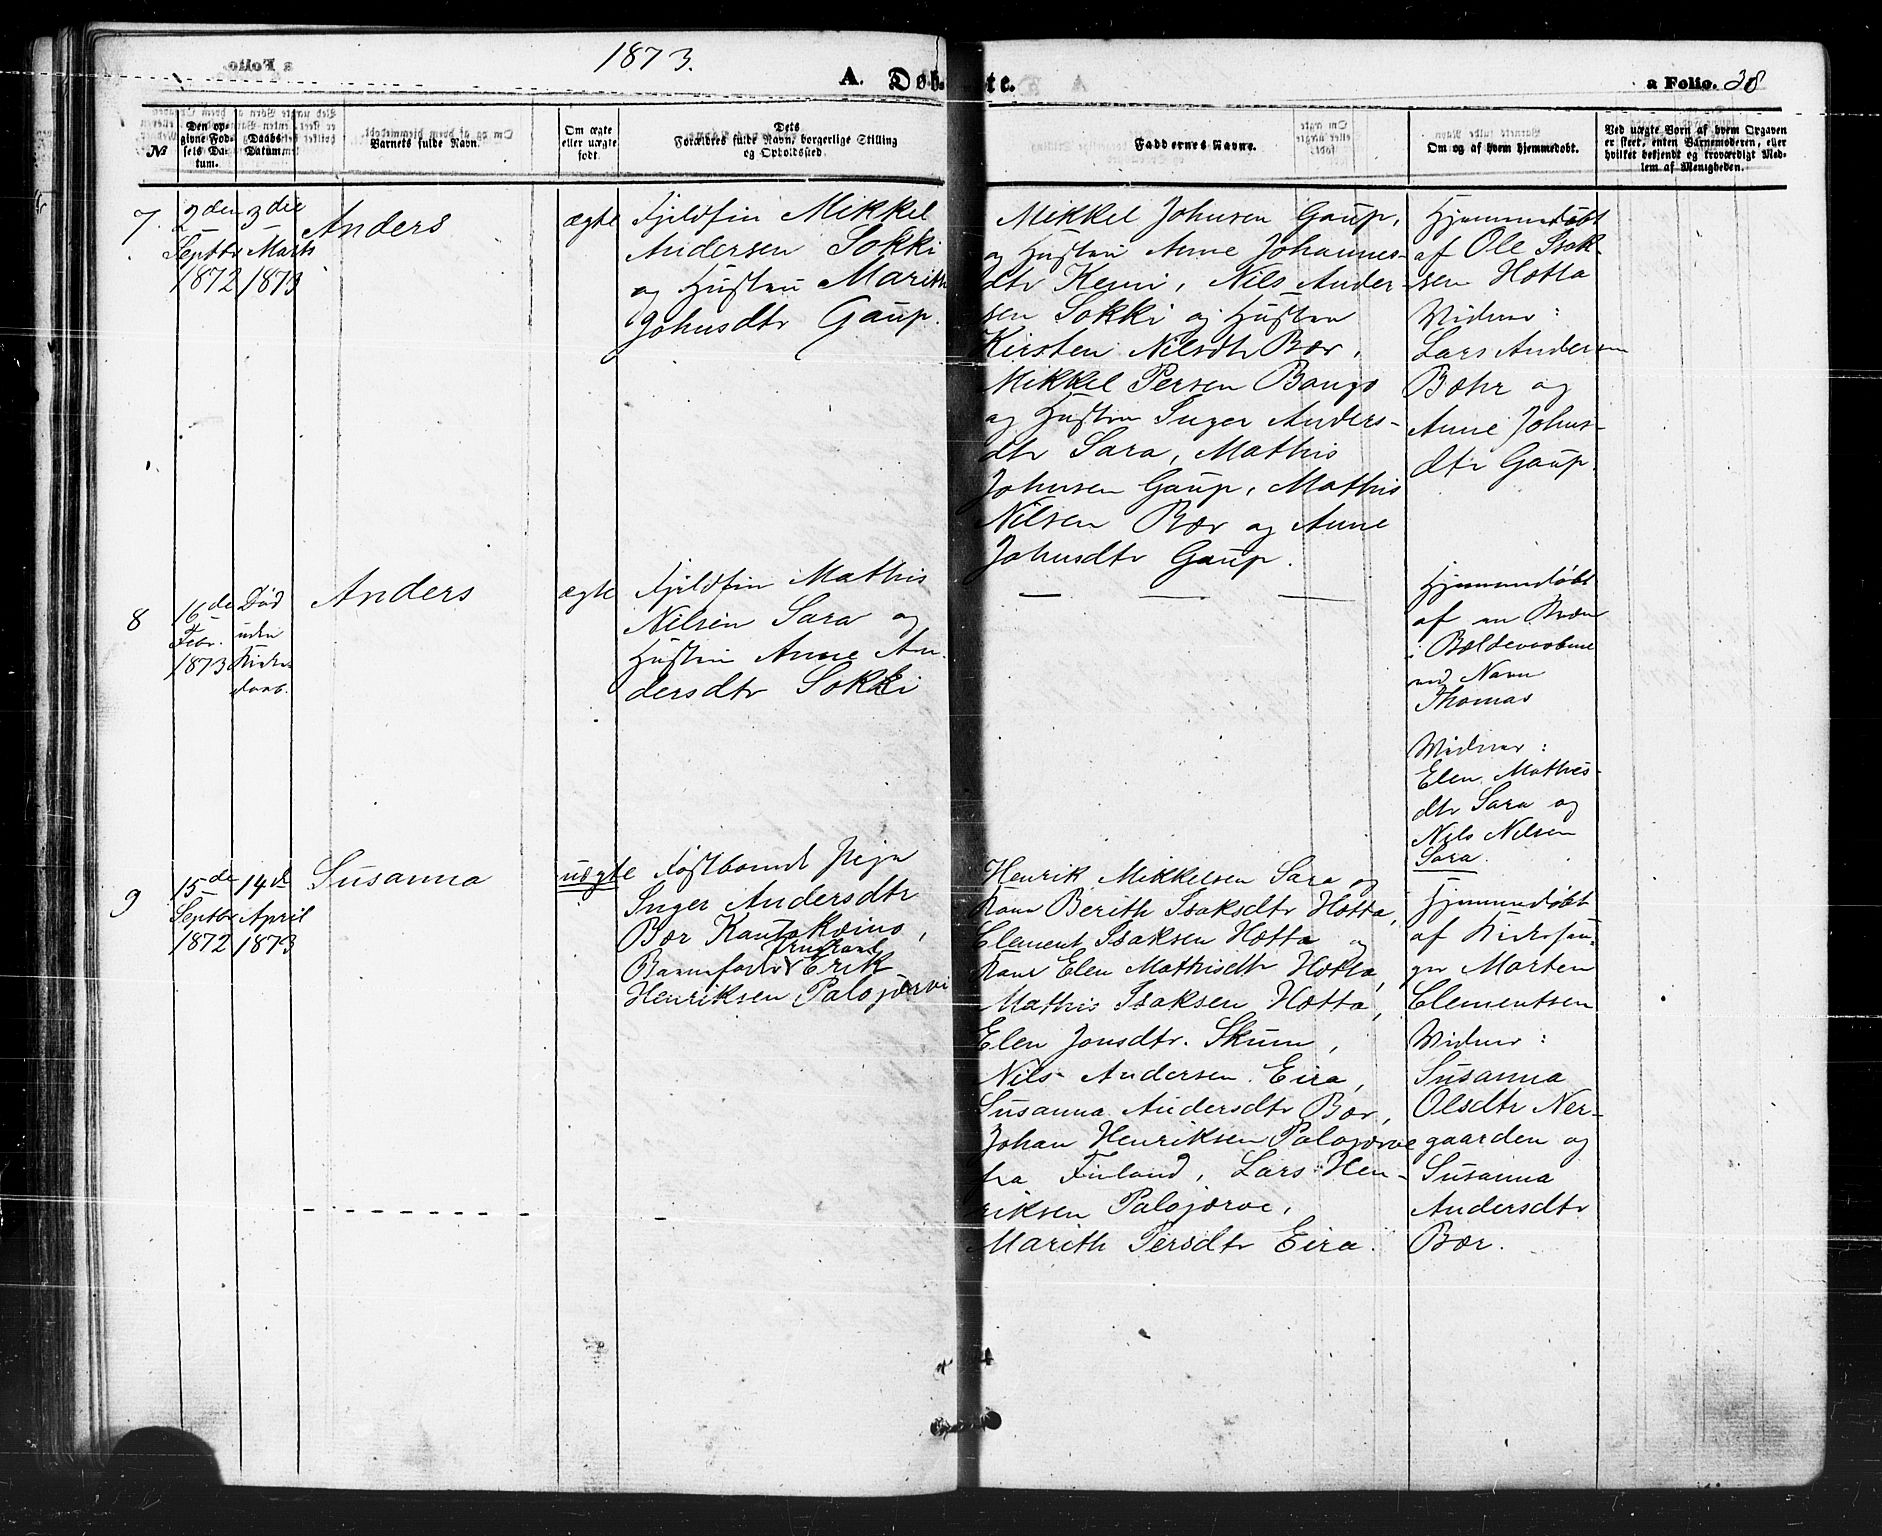 1873.
A. Døbte.
a Folio. 38
№
Den opgivne Fødsels Datum.
Daabs Datum.
Barnets fulde Navn.
Om ægte eller uægte født.
Dets Forældres fulde Navn, borgerlige Stilling og Opholdssted.
Faddernes Navne.
Om og af hvem hjemmedøbt.
Ved uægte Børn af hvem Opgaven er skeet, enten Barnemoderen, eller hvilket bekjendt og troværdigt Medlem af Menigheden.
7.
2den
Septbr
1872
3die
Marts
1873
Anders
ægte
Fjeldfin Mikkel
Andersen Sokki
og Hustru Marith
Johnsdtr Gaup.
Mikkel Johnsen Gaup,
og Hustru Anne Johannes-
dtr Kemi, Nils Ander-
sen Sokki og Hustru
Kirsten Nilsdtr Bær,
Mikkel Persen Bongo
og Hustru Inger Anders-
dtr Sara, Mathis
Johnsen Gaup, Mathis
Nilsen Bær og Anne
Johnsdtr Gaup.
Hjemmedøbt
af Ole Isak-
sen Hætta
Vidner:
Lars Andersen
Bæhr og
Anne Johns-
dtr Gaup.
8
16de
Febr.
1873
Død
uden
Kirke-
daab.
Anders
ægte
Fjeldfin Mathis
Nilsen Sara og
Hustru Anne An-
dersdtr Sokki
— — —
Hjemmedøbt
af en Kvæn
i
ved Navn
Thomas
Vidner:
Elen Mathis-
dtr Sara og
Nils Nilsen
Sara.
9
15de
Septbr
1872
14de
April
1873
Susanna
uægte
Fastboende Pige
Inger Andersdtr
Bær Kautokeino,
Ungkarl
Barnefader Erik
Henriksen Palojærvi
Henrik Mikkelsen Sara og
Kone Berith Isaksdtr Hætta,
Clement Isaksen Hætta og
Kone Elen Mathisdtr Hætta,
Mathis Isaksen Hætta,
Elen Jonsdtr. Skum,
Nils Andersen Eira,
Susanna Andersdtr Bær,
Johan Henriksen Palojærve
fra Finland, Lars Hen-
riksen Palojærve,
Marith Persdtr Eira.
Hjemmedøbt
af Kirkesan-
ger Morten
Clementsen
Vidner:
Susanna
Olsdtr Ner-
gaarden og
Susanna
Andersdtr
Bær.